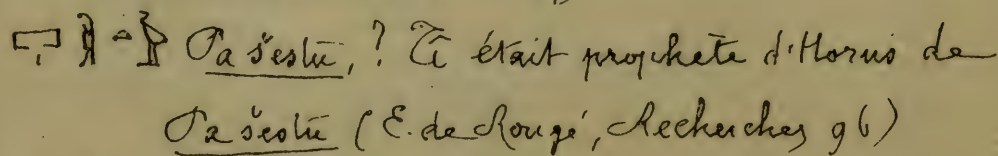 Pa šestu, ? Ti était prophète d'Horus de
Pa šestu (E. de Rougé, Recherches 96)